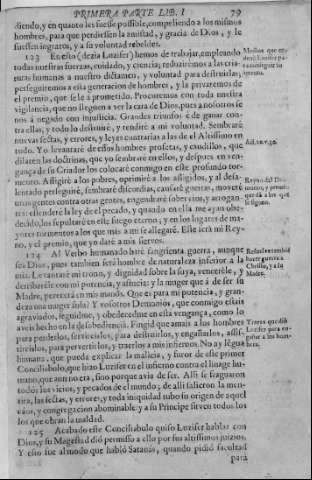 PRIMERA PARTE LIB. I 79
diendo, y en quanto les fuesse possible, compeliendo a los mismos
hombres, para que perdiessen la amistad, y gracia de Dios, y le
fuessen ingratos, y a su voluntad rebeldes.
123 En esto (dezia Luzifer) hemos de trabajar, empleando
todas nuestras fuerzas, cuidado, y ciencia; reduziremos a las cria-
turas humanas a nuestro dictamen, y voluntad para destruirlas;
perseguiremos a esta generacion de hombres, y la privaremos de
el premio, que se le à prometido. Procuremos con toda nuestra
vigilancia, que no lleguen a ver la cara de Dios, pues a nosotros se
nos à negado con injusticia. Grandes triunfos è de ganar con-
tra ellas, y todo lo destruirè, y rendirè a mi voluntad. Sembrarè
nuevas sectas, y errores, y leyes contrarias a las de el Altissimo en
todo. Yo levantarè de essos hombres profetas, y caudillos, que
dilaten las doctrinas, que yo sembrare en ellos, y despues en ven-
gança de su Criador los colocarè conmigo en este profundo tor-
mento. Afligirè a los pobres, oprimirè a los afligidos, y al desa-
lentado perseguirè, sembrarè discordias, causarè guerras, moverè
unas gentes contra otras gentes, engendrarè soberbios, y arrogan-
tes: estenderè la ley de el pecado, y quando en ella me ayan obe-
decido, los sepultarè en este fuego eterno, y en los lugares de ma-
yores tormentos a los que mas a mi se allegarè. Este serà mi Rey-
no, y el premio, que yo darè a mis siervos.
124 Al Verbo humanado harè sangrienta guerra, aunque
sea Dios, pues tambien serà hombre de naturaleza inferior a la
mia. Levantarè mi trono, y dignidad sobre la suya, vencerèle, y
derribarèle con mi potencia, y astucia; y la muger que à de ser su
Madre, perecerà en mis manos. Que es para mi potencia, y gran-
deza una muger sola? Y vosotros Demonios, que conmigo estais
agraviados, seguidme, y obedecedme en esta vengança, como lo
aveis hecho en la desobediencia. Fingid que amais a los hombres
para perderlos, servidlos, para destruirlos, y engañarlos, assis-
tiréslos, para pervertirlos, y traerlos a mis infiernos. No ay lengua
humana, que pueda explicar la malicia, y furor de este primer
Conciliabulo, que hizo Luzifer en el infierno contra el linage hu-
mano, que aun no era, sino porque avia de ser. Alli se fraguaron
todos los vicios, y pecados de el mundo; de alli salieron la menti-
ra, las sectas, y errores, y toda iniquidad tubo su origen de aquel
caos, y congregacion abominable: y a su Principe sirven todos los
que obran la maldad.
125 Acabado este Conciliabulo quiso Luzifer hablar con
Dios, y su Magestad diò permisso a ello por sus altissimos juizios.
Y esto fue al modo que hablò Satanàs, quando pidiò facultad
para